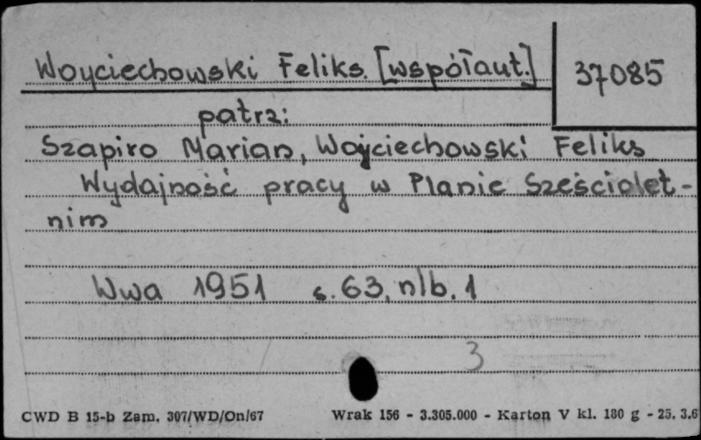 Woyciechowski Feliks. [współaut.] 37085
patrz:
Szapiro Marian, Wojciechowski Feliks
Wydajność pracy w Planie Sześciolet-
nim
Wwa 1951 s. 63, nlb. 1
3
CWD B 15-b Zam. 307/WD/On/67 Wrak 156 - 3.305.000 - Karton V kl. 180 g - 25. 3.6